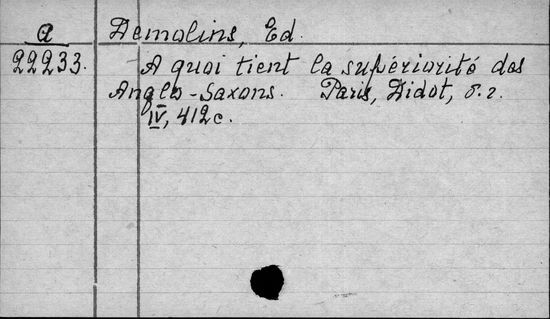 a Demolins, Ed.
22233. A quoi tient la supériorité des
Anglo-Saxons. Paris, Didot, s. г.
IV, 412 c.